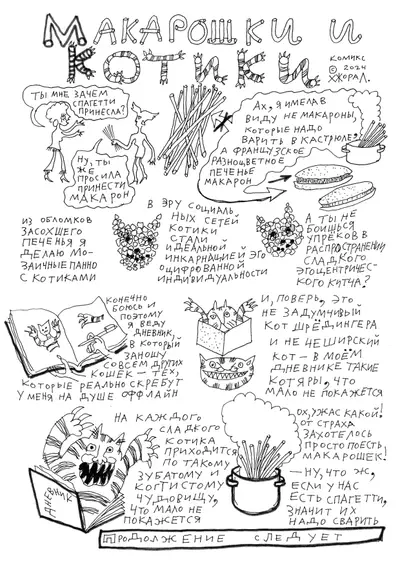 МАКАРОШКИ И
КОТИКИ
КОМИКС
© 2024
ХХОРАЛ.
ТЫ МНЕ ЗАЧЕМ
СПАГЕТТИ
ПРИНЕСЛА?
НУ, ТЫ
ЖЕ
ПРОСИЛА
ПРИНЕСТИ
МАКАРОН
АХ, Я ИМЕЛА В
ВИДУ НЕ МАКАРОНЫ,
КОТОРЫЕ НАДО
ВАРИТЬ В КАСТРЮЛЕ,
А ФРАНЦУЗСКОЕ
РАЗНОЦВЕТНОЕ
ПЕЧЕНЬЕ
МАКАРОН
ИЗ ОБЛОМКОВ
ЗАСОХШЕГО
ПЕЧЕНЬЯ Я
ДЕЛАЮ МО-
ЗАИЧНЫЕ ПАННО
С КОТИКАМИ
В ЭРУ СОЦИАЛЬ-
НЫХ СЕТЕЙ
КОТИКИ
СТАЛИ
ИДЕАЛЬНОЙ
ИНКАРНАЦИЕЙ ЭГО
ОЦИФРОВАННОЙ
ИНДИВИДУАЛЬНОСТИ
А ТЫ НЕ
БОИШЬСЯ
УПРЁКОВ В
РАСПРОСТРАНЕНИИ
СЛАДКОГО
ЭГОЦЕНТРИЧЕС-
КОГО КИТЧА?
КОНЕЧНО
БОЮСЬ И
ПОЭТОМУ
Я ВЕДУ
ДНЕВНИК,
В КОТОРЫЙ
ЗАНОШУ
СОВСЕМ ДРУГИХ
КОШЕК – ТЕХ,
КОТОРЫЕ РЕАЛЬНО СКРЕБУТ
У МЕНЯ НА ДУШЕ ОФФЛАЙН
И, ПОВЕРЬ, ЭТО
НЕ ЗАДУМЧИВЫЙ
КОТ ШРЁДИНГЕРА
И НЕ ЧЕШИРСКИЙ
КОТ – В МОЁМ
ДНЕВНИКЕ ТАКИЕ
КОТЯРЫ, ЧТО
МАЛО НЕ ПОКАЖЕТСЯ
ДНЕВНИК
НА КАЖДОГО
СЛАДКОГО
КОТИКА
ПРИХОДИТСЯ
ПО ТАКОМУ
ЗУБАТОМУ И
КОГТИСТОМУ
ЧУДОВИЩУ,
ЧТО МАЛО НЕ
ПОКАЖЕТСЯ
ОХ, УЖАС КАКОЙ!
ОТ СТРАХА
ЗАХОТЕЛОСЬ
ПРОСТО ПОЕСТЬ
МАКАРОШЕК!
– НУ, ЧТО Ж,
ЕСЛИ У НАС
ЕСТЬ СПАГЕТТИ,
ЗНАЧИТ ИХ
НАДО СВАРИТЬ
ПРОДОЛЖЕНИЕ СЛЕДУЕТ